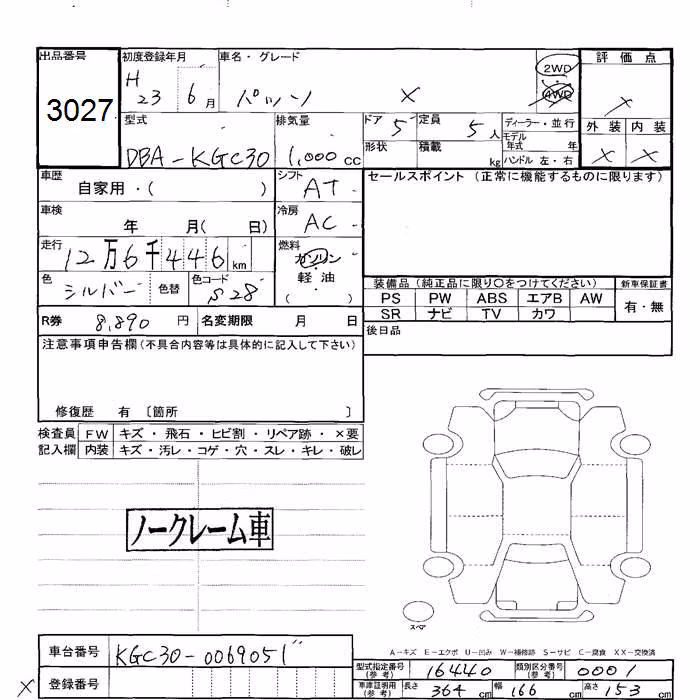 出品番号 初度登録年月 車名・グレード 評価点
3027 H 23 6月 パッソ X 2WD 4WD X
型式 排気量 ドア 5 定員 5人 ディーラー・並行 外装 内装
DBA-KGC30 1,000cc 形状 積載 kg モデル年式 年 X X
ハンドル 左・右
車歴 自家用・( ) シフト AT セールスポイント (正常に機能するものに限ります)
車検 年 月( 日) 冷房 AC
走行 12万6千446km 燃料 ガソリン
軽・油
( )
色 シルバー 色替 色コード S28 装備品 (純正品に限り○をつけてください) 新車保証書
PS PW ABS エアB AW 有・無
R券 8,890円 名変期限 月 日 SR ナビ TV カワ
注意事項申告欄(不具合内容等は具体的に記入して下さい) 後日品
修復歴 有 〔箇所 〕
検査員 FW キズ・飛石・ヒビ割・リペア跡・×要
記入欄 内装 キズ・汚レ・コゲ・穴・スレ・キレ・破レ
ノークレーム車
スペア
A-キズ E-エクボ U-凹み W-補修跡 S-サビ C-腐食 XX-交換済
車台番号 KGC30-0069051" 型式指定番号(参考) 16440 類別区分番号(参考) 0001
X 登録番号 車庫証明用(参考) 長さ 364cm 幅 166cm 高さ 153cm